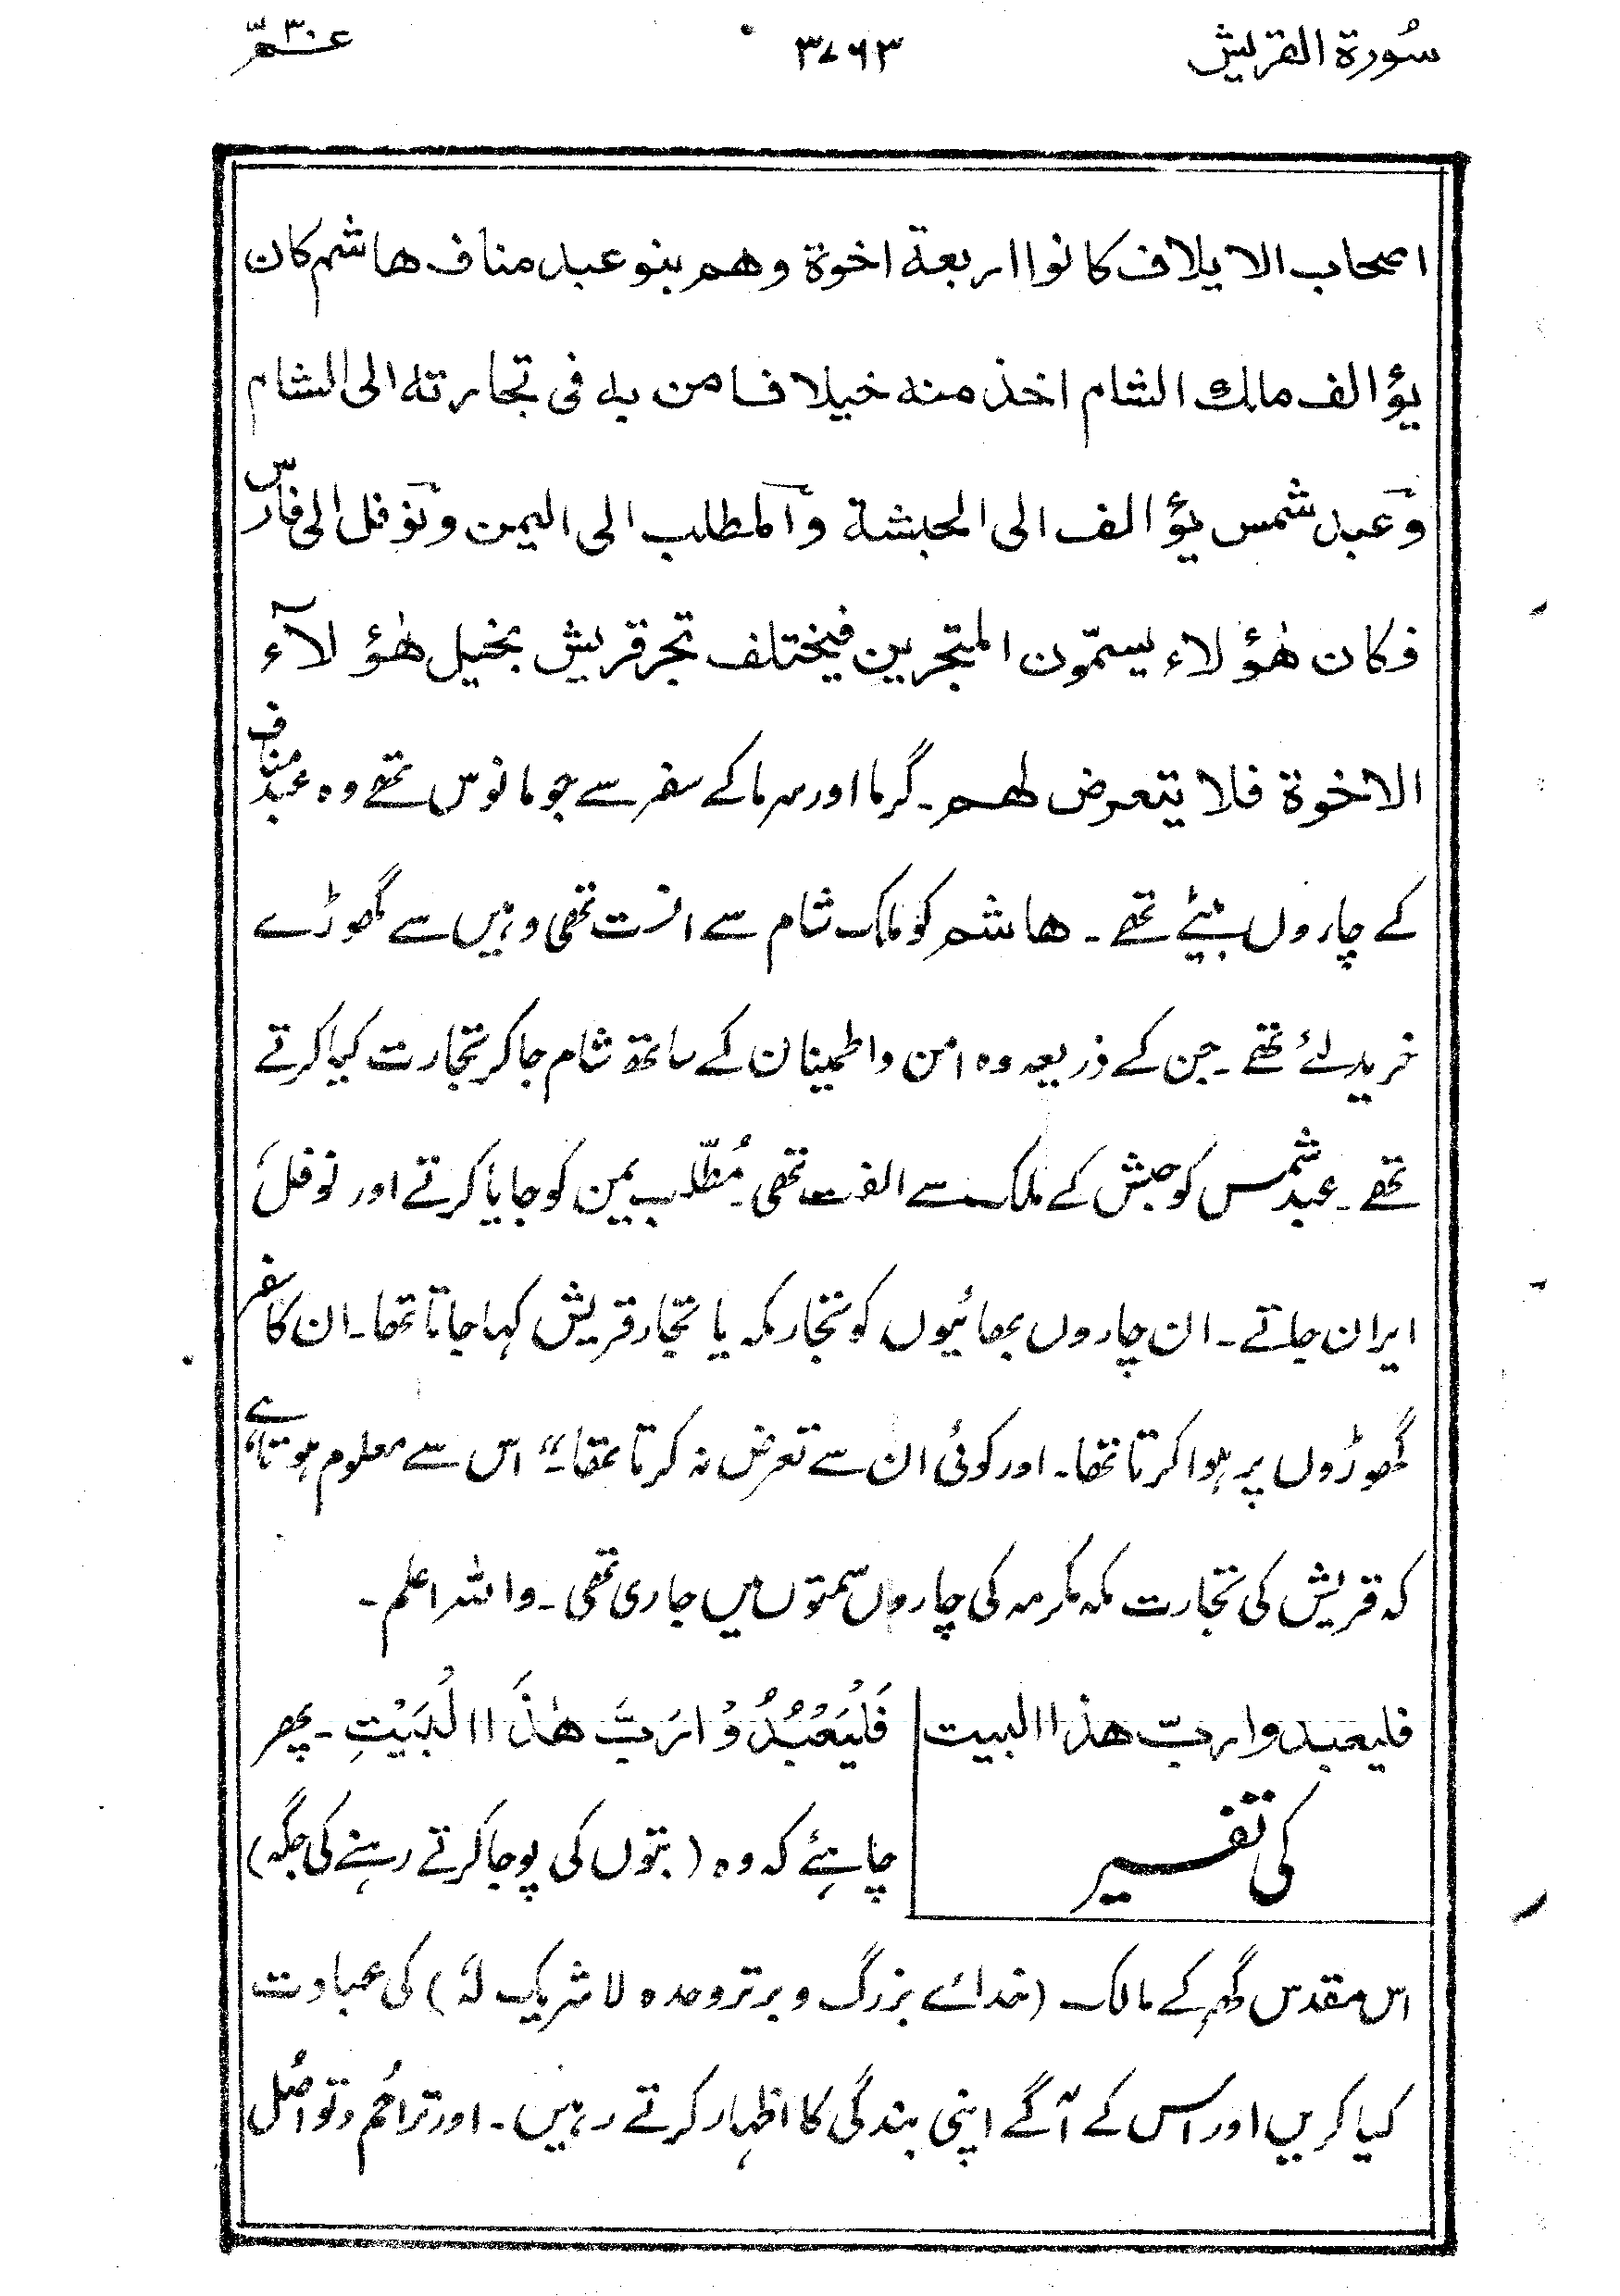 سُورة القریش ۳۷۶۳ عـــمّ ۳۰
اصحاب الایلاف کانوا اربعة اخوة وهم بنو عبد مناف هاشم کان
یؤالف مالك الشام اخذ منه خیلا فامن به فی تجارته الی الشام
وعبد شمس یؤالف الی الحبشة والمطلب الی الیمن ونوفل الی فارس
فکان هٰؤلاء یسمّون المتجرین فیختلف تجر قریش بخیل هٰؤلآء
الاخوة فلا یتعرض لهم۔ گرما اور سرما کے سفر سے جو مانوس تھے وہ عبد مناف
کے چاروں بیٹے تھے۔ ھاشم کو ملک شام سے انست تھی وہیں سے گھوڑے
خرید لئے تھے۔ جن کے ذریعہ وہ امن واطمینان کے ساتھ شام جاکر تجارت کیا کرتے
تھے۔ عبد شمس کو حبش کے ملک سے الفت تھی۔ مُطّلب یمن کو جایا کرتے اور نوفل
ایران جاتے۔ ان چاروں بھائیوں کو تجار مکہ یا تجار قریش کہا جاتا تھا۔ ان کا سفر
گھوڑوں پر ہوا کرتا تھا۔ اور کوئی ان سے تعرض نہ کرتا تھا۔“ اس سے معلوم ہوتا ہے
کہ قریش کی تجارت مکہ مکرمہ کی چاروں سمتوں میں جاری تھی۔ واللہ اعلم۔
فلیعبدوا ربّ هذا البیت
کی تفسیر
فَلْیَعْبُدُوْا رَبَّ هٰذَا الْبَیْتِ۔ پھر
چاہئے کہ وہ (بتوں کی پوجا کرتے رہنے کی جگہ)
اس مقدس گھر کے مالک (خدائے بزرگ و برتر وحدہ لا شریک لہٗ) کی عبادت
کیا کریں اور اس کے آگے اپنی بندگی کا اظہار کرتے رہیں۔ اور تراحُم و تواصُل